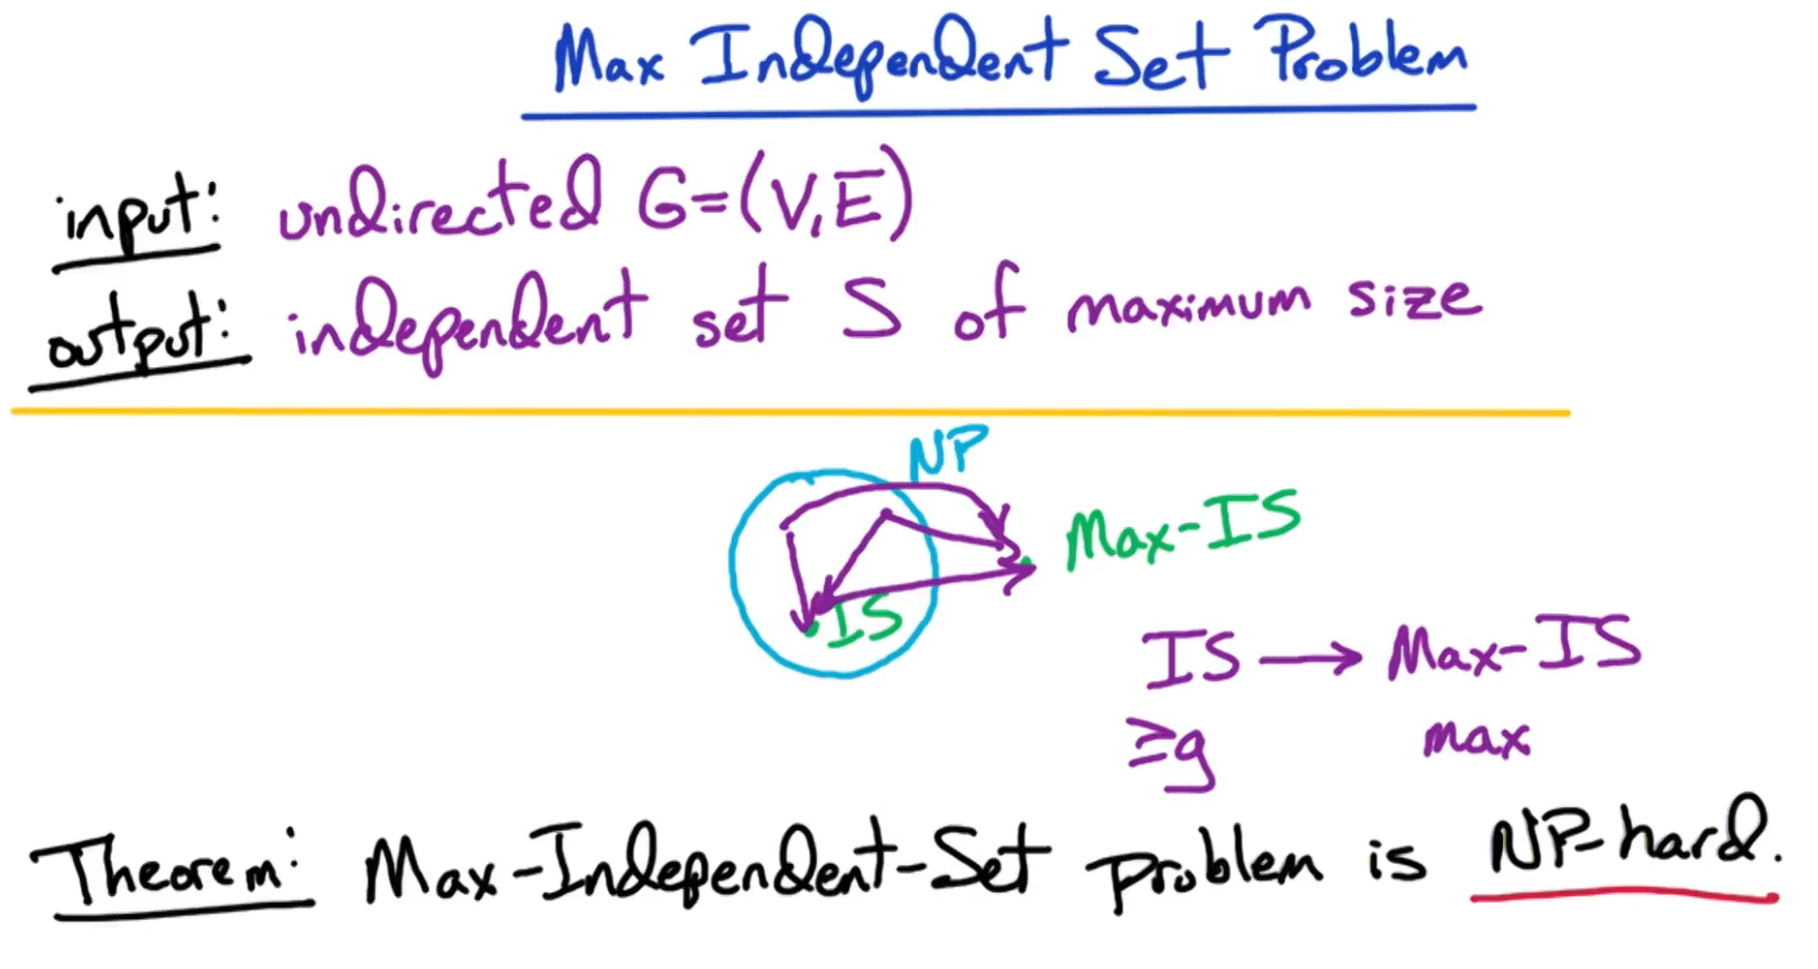 Max Independent Set Problem
input: undirected G=(V,E)
output: independent set S of maximum size
NP
Max-IS
IS
IS → Max-IS
≥g max
Theorem: Max-Independent-Set problem is NP-hard.